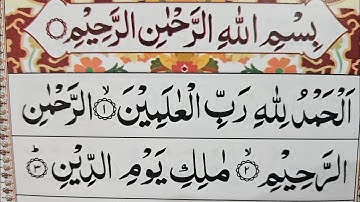 بِسْمِ اللهِ الرَّحْمٰنِ الرَّحِيْمِ
اَلْحَمْدُ لِلّٰهِ رَبِّ الْعٰلَمِيْنَ ۙ﴿۱﴾ الرَّحْمٰنِ
الرَّحِيْمِ ۙ﴿۲﴾ مٰلِكِ يَوْمِ الدِّيْنِ ؕ﴿۳﴾